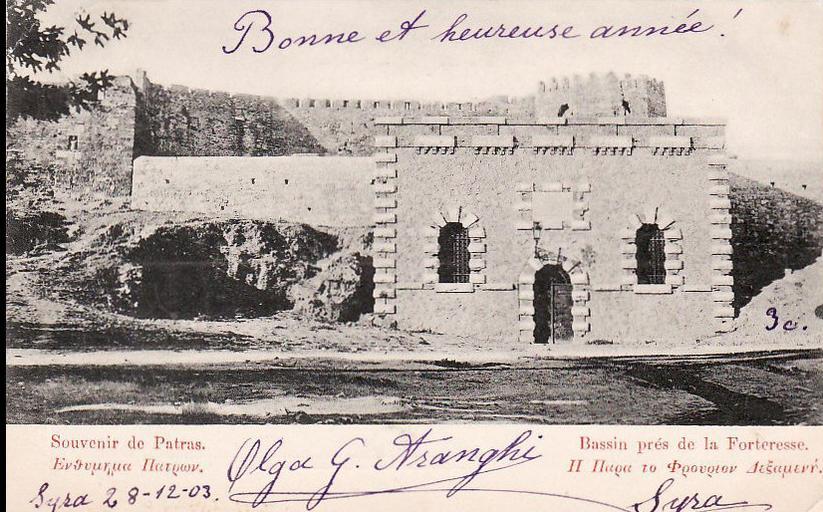 Bonne et heureuse année!
3c.
Souvenir de Patras.
Ενθυμημα Πατρων.
Bassin prés de la Forteresse.
Π Παρα το Φρουριον Δεξαμενή.
Olga G. Aranghi
Syra 28-12-03.
Syra